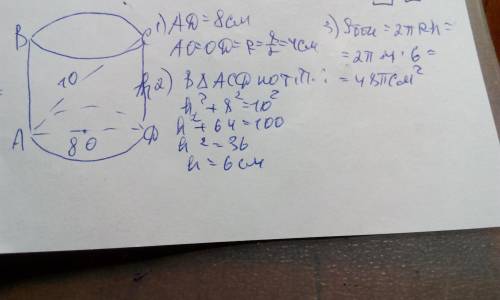 B
C
10
h
A
8 O
D
1) AD = 8 см
AO = OD = R = 8/2 = 4 см
2) В △ ACD по т. П.:
h² + 8² = 10²
h² + 64 = 100
h² = 36
h = 6 см
3) Sбок = 2πRh =
= 2π 4 · 6 =
= 48π см²